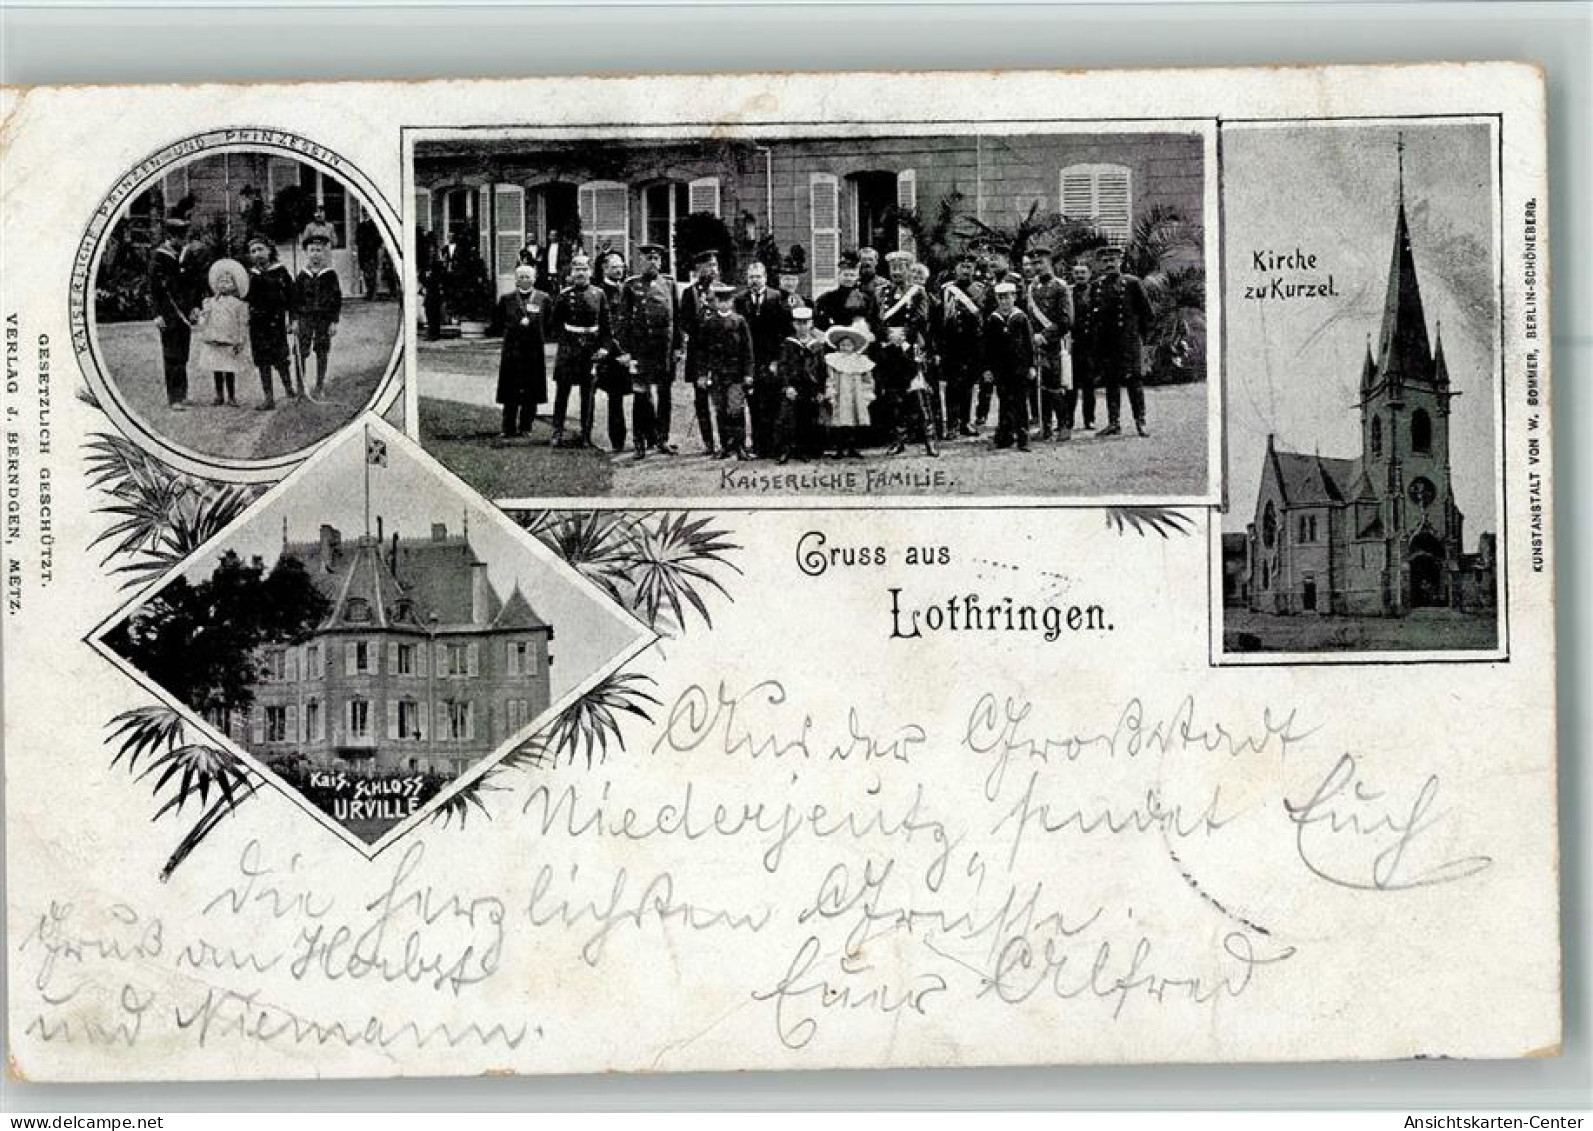 KAISERLICHE PRINZEN UND PRINZESEIN
KAISERLICHE FAMILIE.
Kirche
zu Kurzel.
Kais. SCHLOSS
URVILLE
Gruss aus
Lothringen.
GESETZLICH GESCHÜTZT.
VERLAG J. BERNDGEN, METZ.
KUNSTANSTALT VON W. SOMMER, BERLIN-SCHÖNEBERG.
Aus der Großstadt
Niederjeutz sendet Euch
die herzlichsten Grüsse.
Euer Alfred
Gruß an Herbst
und Niemann.
Ansichtskarten-Center